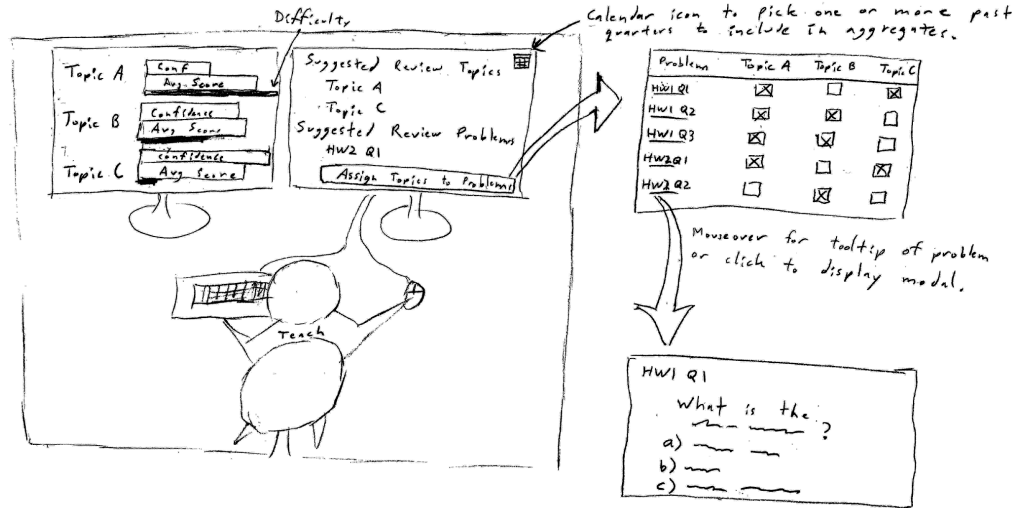 Difficulty
Calendar icon to pick one or more past
quarters to include in aggregates.
Topic A
Conf
Avg. Score
Topic B
Confidence
Avg Score
Topic C
Confidence
Avg Score
Suggested Review Topics
Topic A
Topic C
Suggested Review Problems
HW2 Q1
Assign Topics to Problems
Problem Topic A Topic B Topic C
HW1 Q1
HW1 Q2
HW1 Q3
HW2 Q1
HW2 Q2
Mouseover for tooltip of problem
or click to display modal.
Teach
HW1 Q1
What is the
?
a)
b)
c)